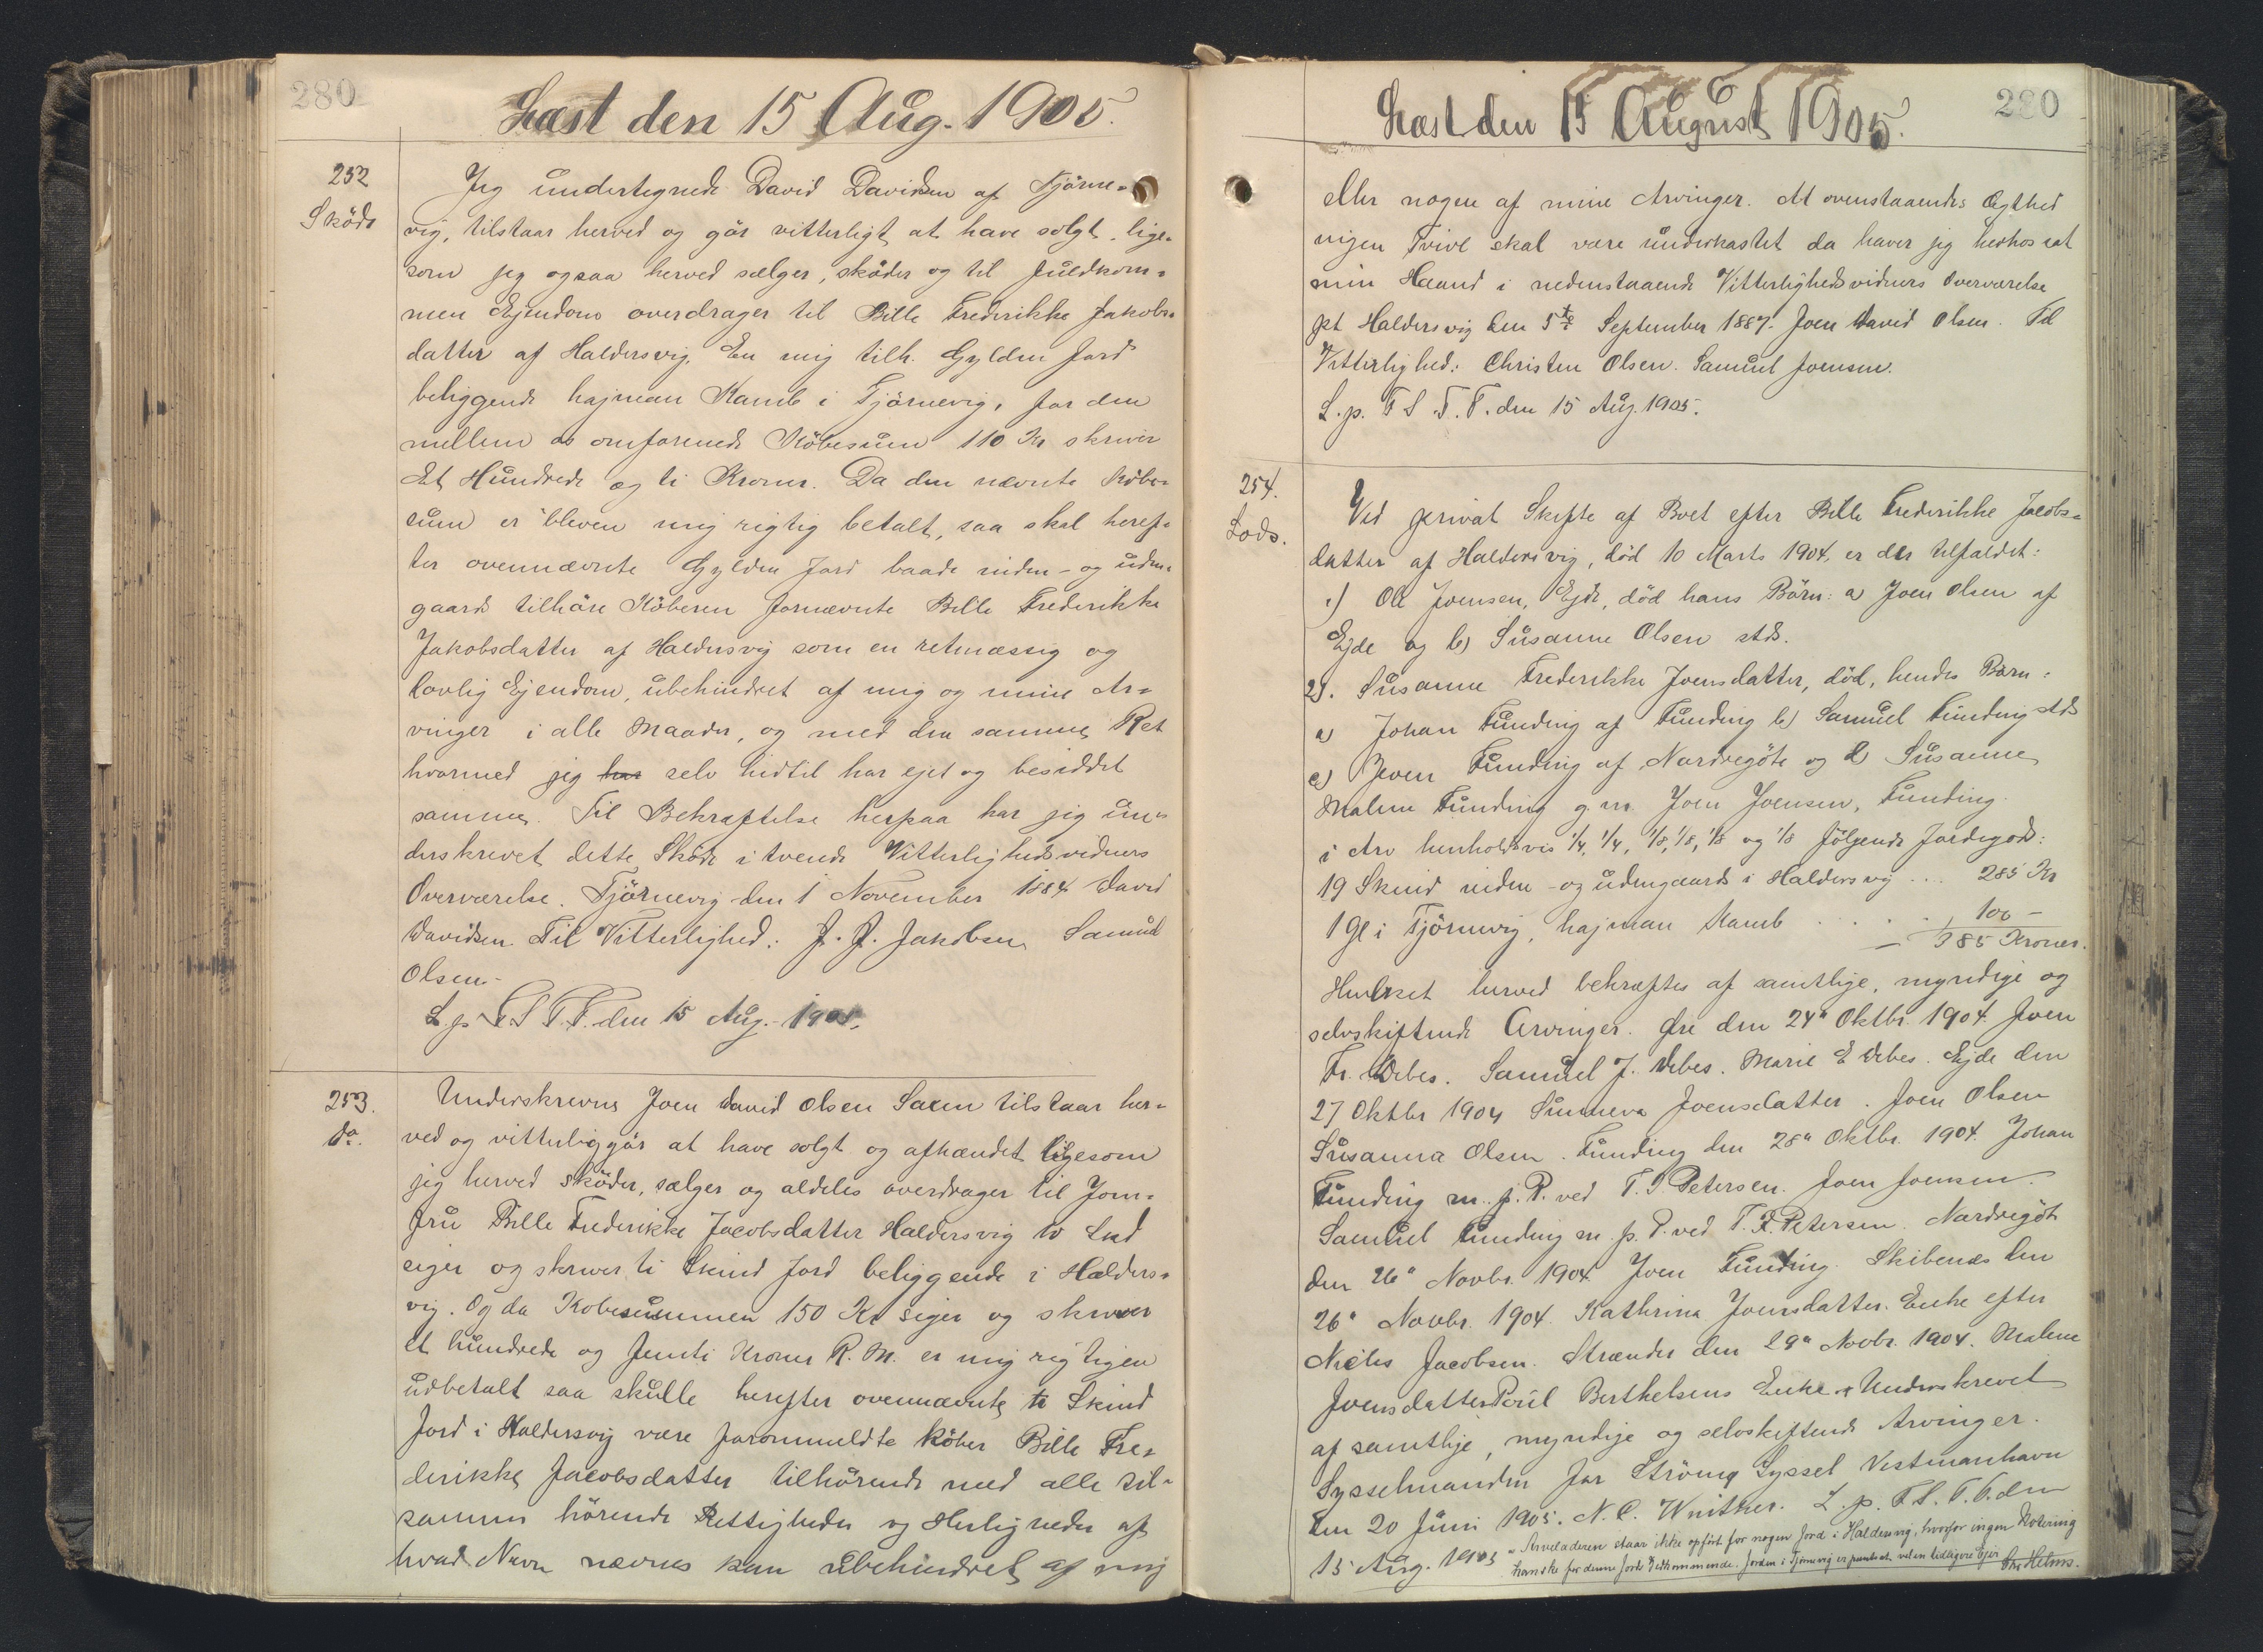 280
Læst den 15 Aug. 1905.
252
Sköde
Jeg undertegnede David Davidsen af Tjörne-
vig, tilstaar herved og gör vitterligt at have solgt, lige-
som jeg ogsaa herved sælger, sköder og til fuldkom-
men Ejendom overdrager til Bille Frederikke Jakobs-
datter af Haldersvig. En mig tilh. Gylden Jord
beliggende hajman Kamb i Tjörnevig, for den
mellem os omforenede Köbesum 110 Kr skriver
Et Hundrede og ti Kroner. Da den nævnte Köbe-
sum er bleven mig rigtig betalt, saa skal heref-
ter ovennævnte Gylden Jord baade inden- og uden-
gaards tilhöre Köberen fornævnte Bille Frederikke
Jakobsdatter af Haldersvig som en retmæssig og
lovlig Ejendom, ubehindret af mig og mine Ar-
vinger i alle Maader, og med den samme Ret
hvormed jeg har selv hidtil har ejet og besiddet
samme. Til Bekræftelse herpaa har jeg un-
derskrevet dette Sköde i tvende Vitterlighedsvidners
Overværelse. Tjörnevig den 1 November 1884 David
Davidsen. Til Vitterlighed: J. J. Jakobsen Samuel
Olsen.
L. p. F S T. F. den 15 Aug. 1905.
253.
do.
Underskrevne Joen David Olsen Saxen tilstaar her-
ved og vitterliggör at have solgt og afhændet ligesom
jeg herved sköder, sælger og aldeles overdrager til Jom-
fru Bille Frederikke Jacobsdatter Haldersvig 10 Skd
siger og skriver ti Skind Jord beliggende i Halders-
vig. Og da Kobesummen 150 Kr siger og skriver
et hundrede og femti Kroner R. M. er mig rigtigen
udbetalt saa skulle herefter ovennævnte ti Skind
Jord i Haldersvig være forommeldte köber Bille Fre-
derikke Jacobsdatter tilhörende med alle til-
samme hörende Rettigheder og Herligheder af
hvad Navn nævnes kan ubehindret af mig
280
Læst den 15 August 1905.
eller nogen af mine Arvinger. At ovenstaaendes Ægthed
nigen Tvivl skal være underkastet da haver jeg herhos sat
min Haand i nedenstaaende Vitterlighedsvidners Overværelse
pt Haldersvig den 5te September 1887. Joen David Olsen. Til
Vitterlighed: Christen Olsen. Samuel Joensen.
L. p. F S. T. F. den 15 Aug. 1905.
254.
Lods.
Ved privat Skifte af Boet efter Bille Frederikke Jacobs-
datter af Haldersvig, död 10 Marts 1904, er der tilfaldet:
1) Ole Joensen, Ejde, död hans Börn: a) Joen Olsen af
Ejde og b) Susanne Olsen stds.
2). Susanne Frederikke Joensdatter, död, hendes Börn:
a) Johan Funding af Funding b) Samuel Funding stds
c) Joen Funding af Nordregöte og d) Susanne
Malene Funding g. m. Joen Joensen, Funding.
i Arv henholdsvis 1/4, 1/4, 1/8, 1/8, 1/8 og 1/8 fölgende Jordegods:
19 Skind inden- og udengaards i Haldersvig ... 285 Kr
1 Gl i Tjörnevig, hajman Kamb . . . . 100 -
385 Kroner.
Hvilket herved bekræftes af samtlige, myndige og
selvskiftende Arvinger. Öre den 24" Oktbr. 1904. Joen
Fr. Debes. Samuel J. Debes. Marie E Debes. Ejde den
27 Oktbr 1904 Sunneva Joensdatter. Joen Olsen
Susanna Olsen. Funding den 28" Oktbr. 1904. Johan
Funding m. p. P. ved T. P. Petersen. Joen Joensen.
Samuel Funding m. p. P. ved T. P. Petersen. Nordregöte
den 26" Novbr. 1904 Joen Funding. Skibenæs den
26" Novbr. 1904. Kathrina Joensdatter. Enke efter
Niels Jacobsen. Strænder den 29" Novbr. 1904. Malene
Joensdatter Poul Berthelsens Enke. Underskrevet
af samtlige, myndige og selvskiftende Arvinger.
Sysselmanden for Strömö Syssel Vestmanhavn
den 20 Juni 1905. N. C. Winther. L. p. F. S. T. F. den
15 Aug. 1905 " Arveladeren staar ikke opfört for nogen Jord i Haldersvig, hvorfor ingen Notering
kan ske for denne Jords Vedkommende. Jorden i Tjörnevig er pantsat ved en tidligere Ejer Chr Helms.